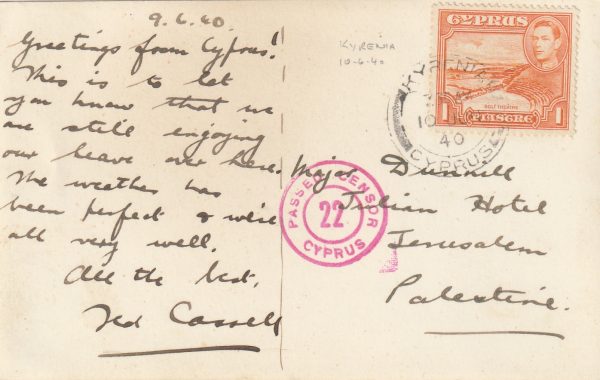 9.6.40.
Greetings from Cyprus!
This is to let
you know that we
are still enjoying
our leave over here.
The weather has
been perfect & we're
all very well.
All the best,
Ted Cassell
KYRENIA
10-6-40
CYPRUS
GOLF THEATRE
1 PIASTRE 1
KYRENIA
10
40
CYPRUS
PASSED CENSOR
22
CYPRUS
Major Dunhill
Julian Hotel
Jerusalem
Palestine.